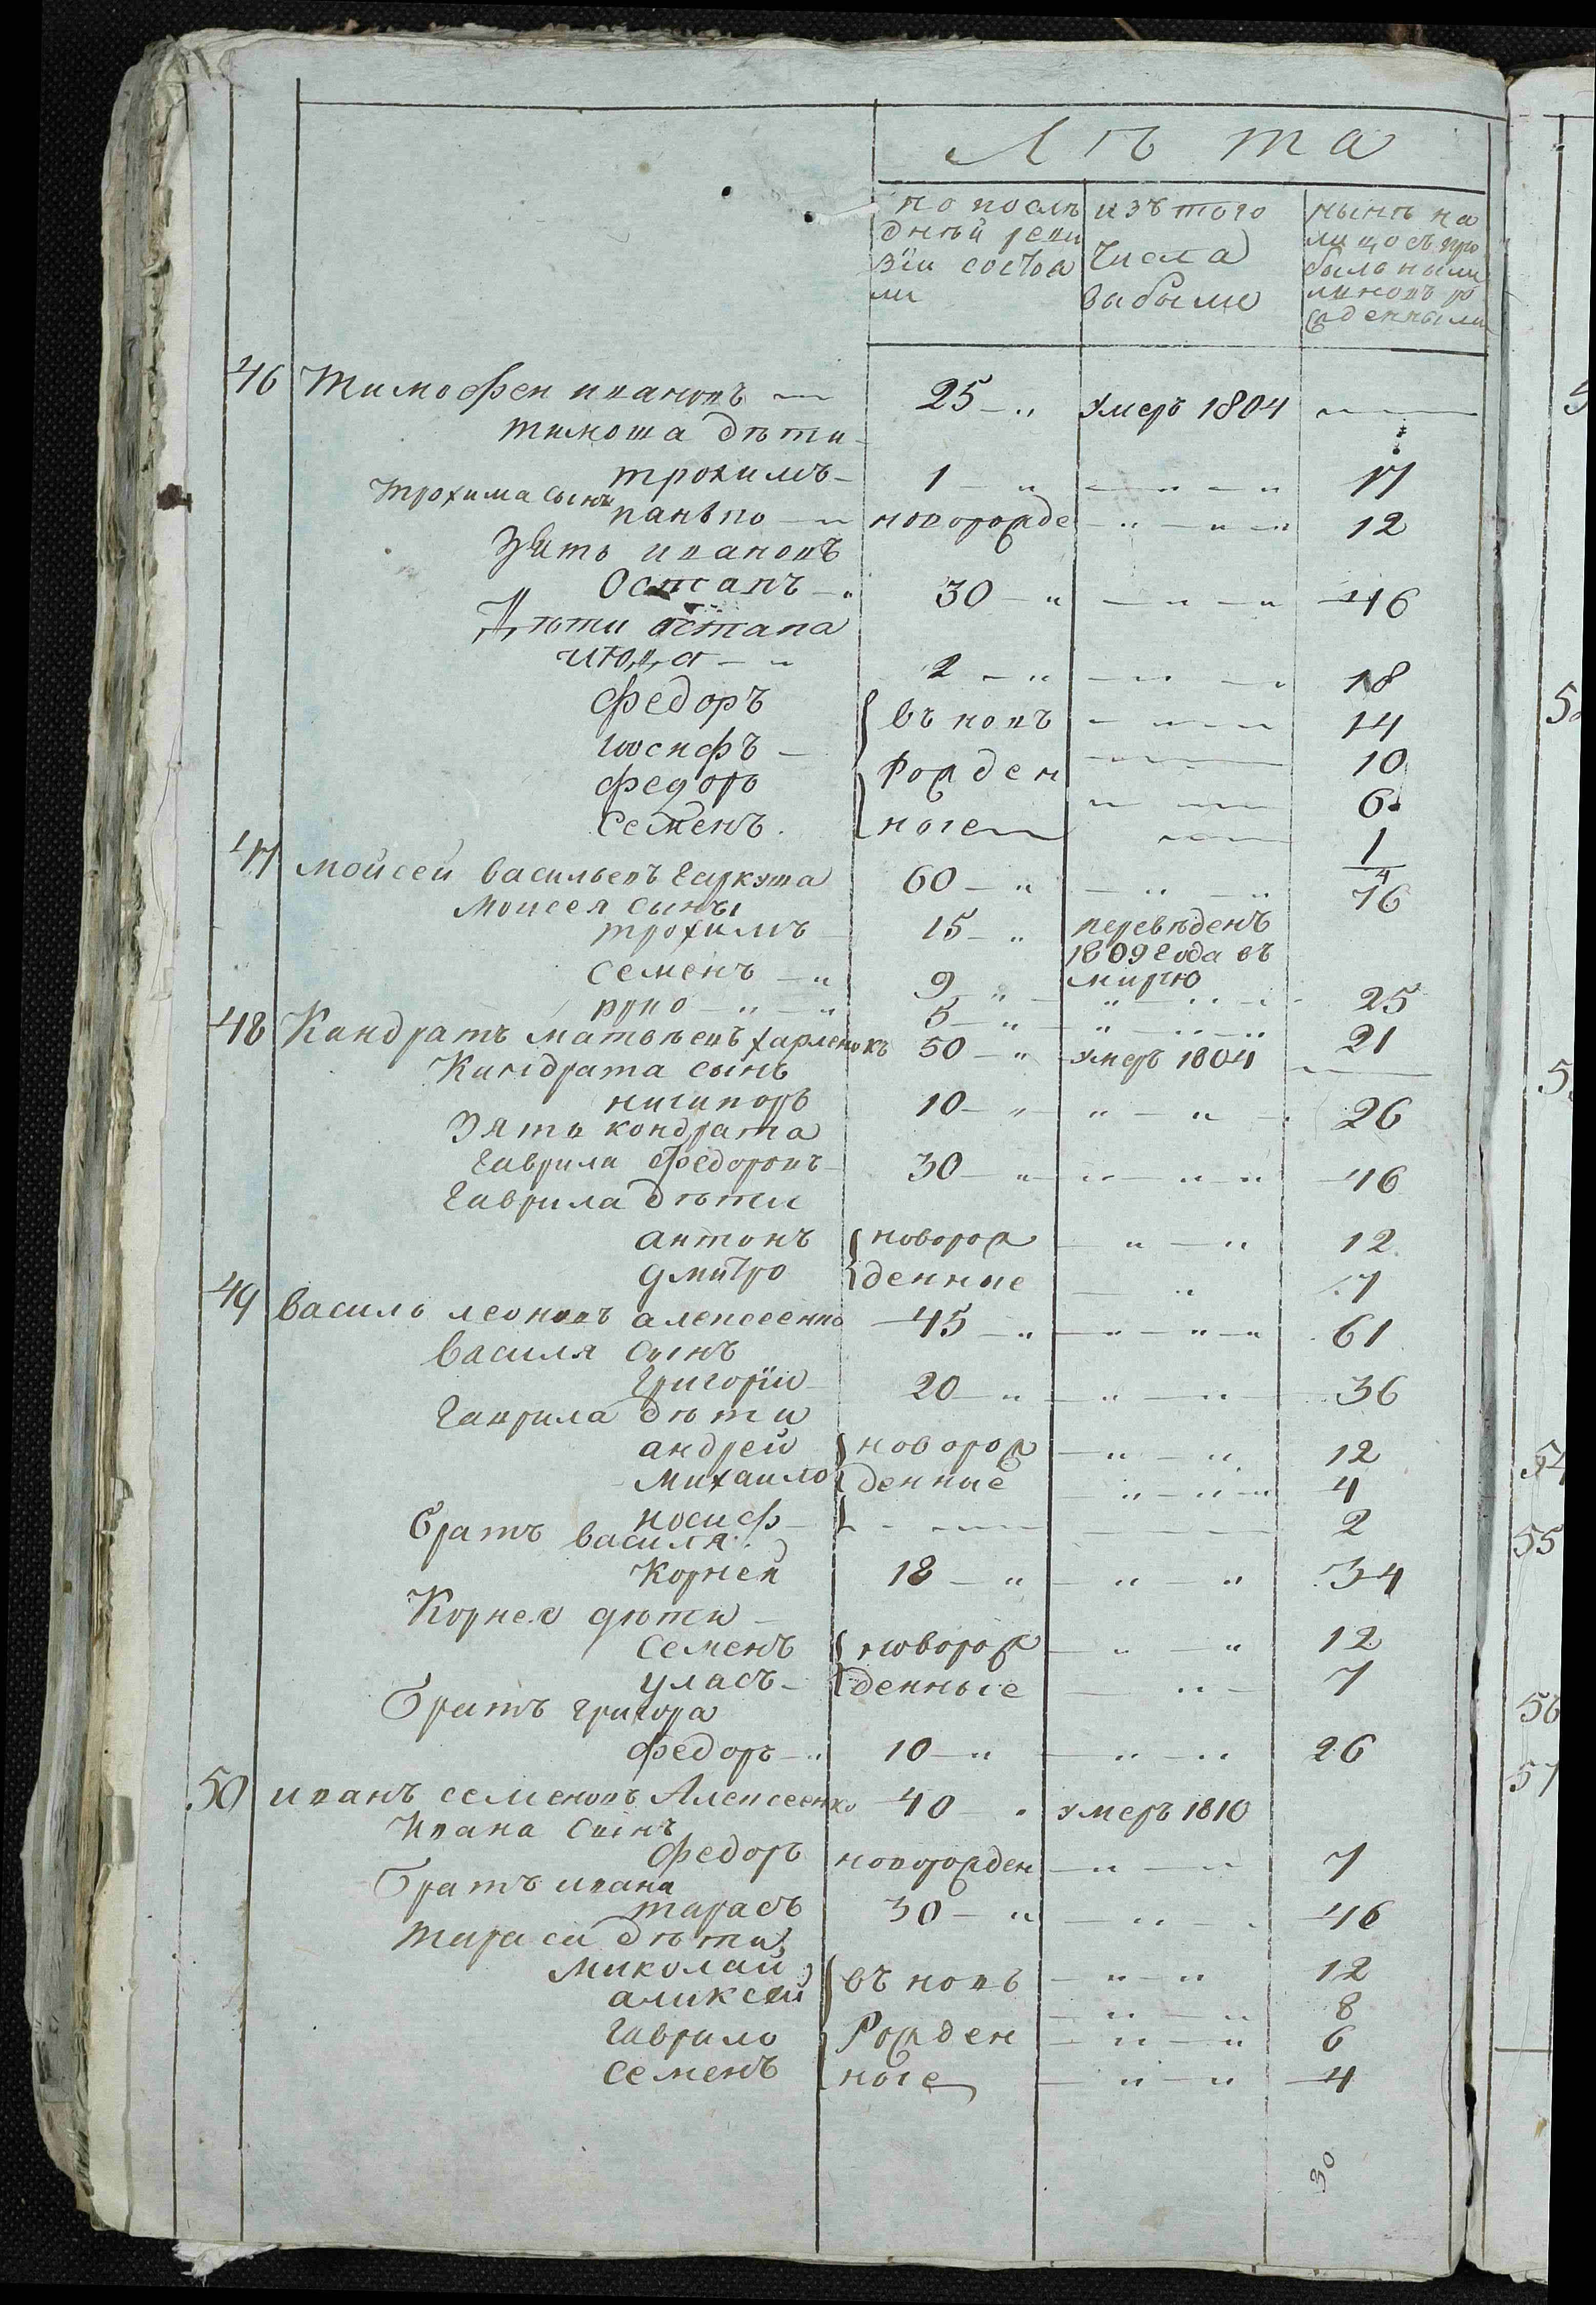 Лѣта
по послѣ дней реви зіи состоя ли | изъ того числа выбыло | нынѣ на лицо съ при былыми иновъ ро жденными
46 Тимофеи ивановъ 25 умеръ 1804
тимоша дѣти
трохимъ 1 17
трохима сынъ павло новорожде 12
Зять ивановъ
Остапъ 30 46
Дѣти остапа
2 18
федоръ въ новъ 14
иосифъ рожден 10
федоръ 6
семенъ ные 1/4
47 мойсей васильевъ гаркуша 60 76
Моисея сыны
трохимъ 15 переведенъ 1809 года въ
семенъ 9 25
5 21
48 Кандратъ матвѣевъ харленокъ 50 умеръ 1804
Кандрата сынъ
ничипоръ 10 26
Зять кондрата
гаврила федоровъ 30 46
гаврила дѣти
антонъ новорож 12
дмитро денние 7
49 василь леоновъ алексеенко 45 61
василя сынъ
григорій 20 36
гаврила дѣти
андрей новорож 12
михаило денные 4
иосиф 2
братъ василя
корней 18 34
Корнея дѣти
семенъ новорож 12
уласъ денные 7
братъ григора
федоръ 10 26
50 иванъ семеновъ Алексеенко 40 умеръ 1810
Ивана сынъ
федоръ новорожден 7
братъ ивана
тарасъ 30 46
тараса дѣти
миколай въ новъ 12
аликсей 8
гаврило рожден 6
семенъ ные 4
30